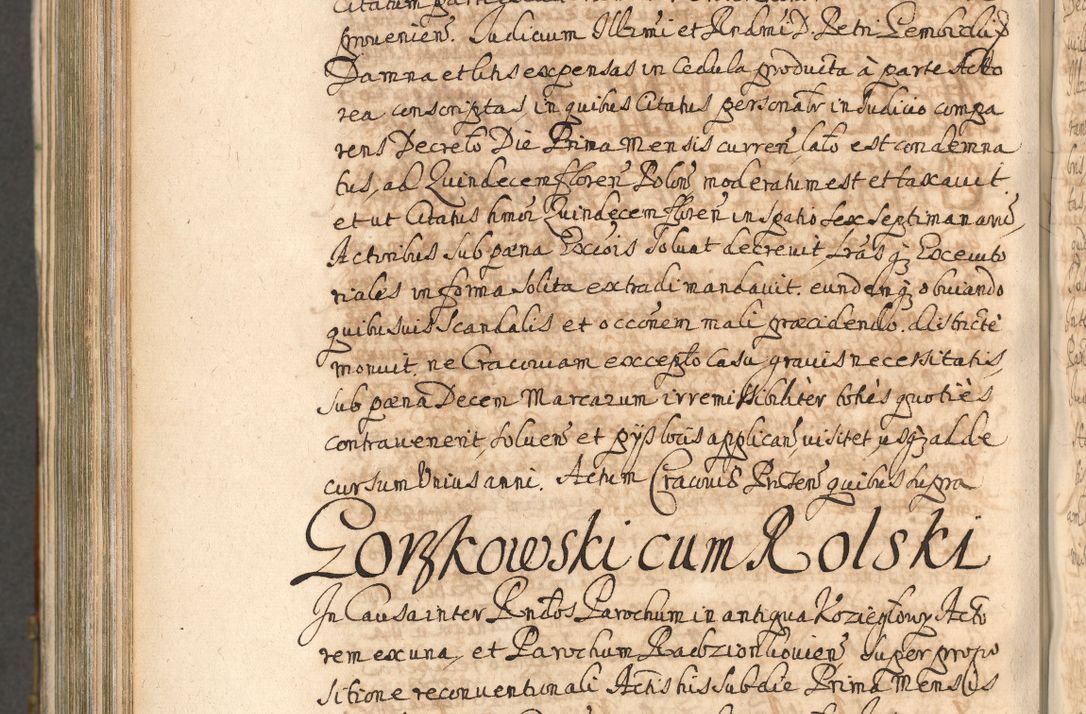 provenien. Iudicium Illrmi et Rndmi D. Petri Gembicki
Damna et litis expensas in Cedula producta à parte Acto
rea conscriptas, in quibus Citatus personalr in Iudicio compa
rens Decreto Die Prima Mensis curren lato est condemna
tus, ad Quindecem floren Polon moderatum est et taxavit.
et ut Citatus hmoi Quindecem floren in spatio sex septimanarū,
Actoribus sub pæna Excōis soluat decrevit, Lrās qz Executo
riales in forma solita extradi mandavit. eundenqz obviando
quibusvis scandalis et occōnem mali præcidendo. districtè
monuit, ne Cracoviam excepto casu gravis necessitatis,
sub pæna Decem Marcarum irremissibilitèr totiès quotiès
contravenerit, soluen et pijs locis applican visitet, usqz ad de
cursum Unius anni. Actum Cracoviæ Præsen quibus supra
Gorzkowski cum Rolski
In Causa inter Rndos Parochum in antiqua Koziegłowy Acto
rem ex una, et Parochum Radzionkovien super propo
sitione reconventionali Actis his sub die Prima Mensis